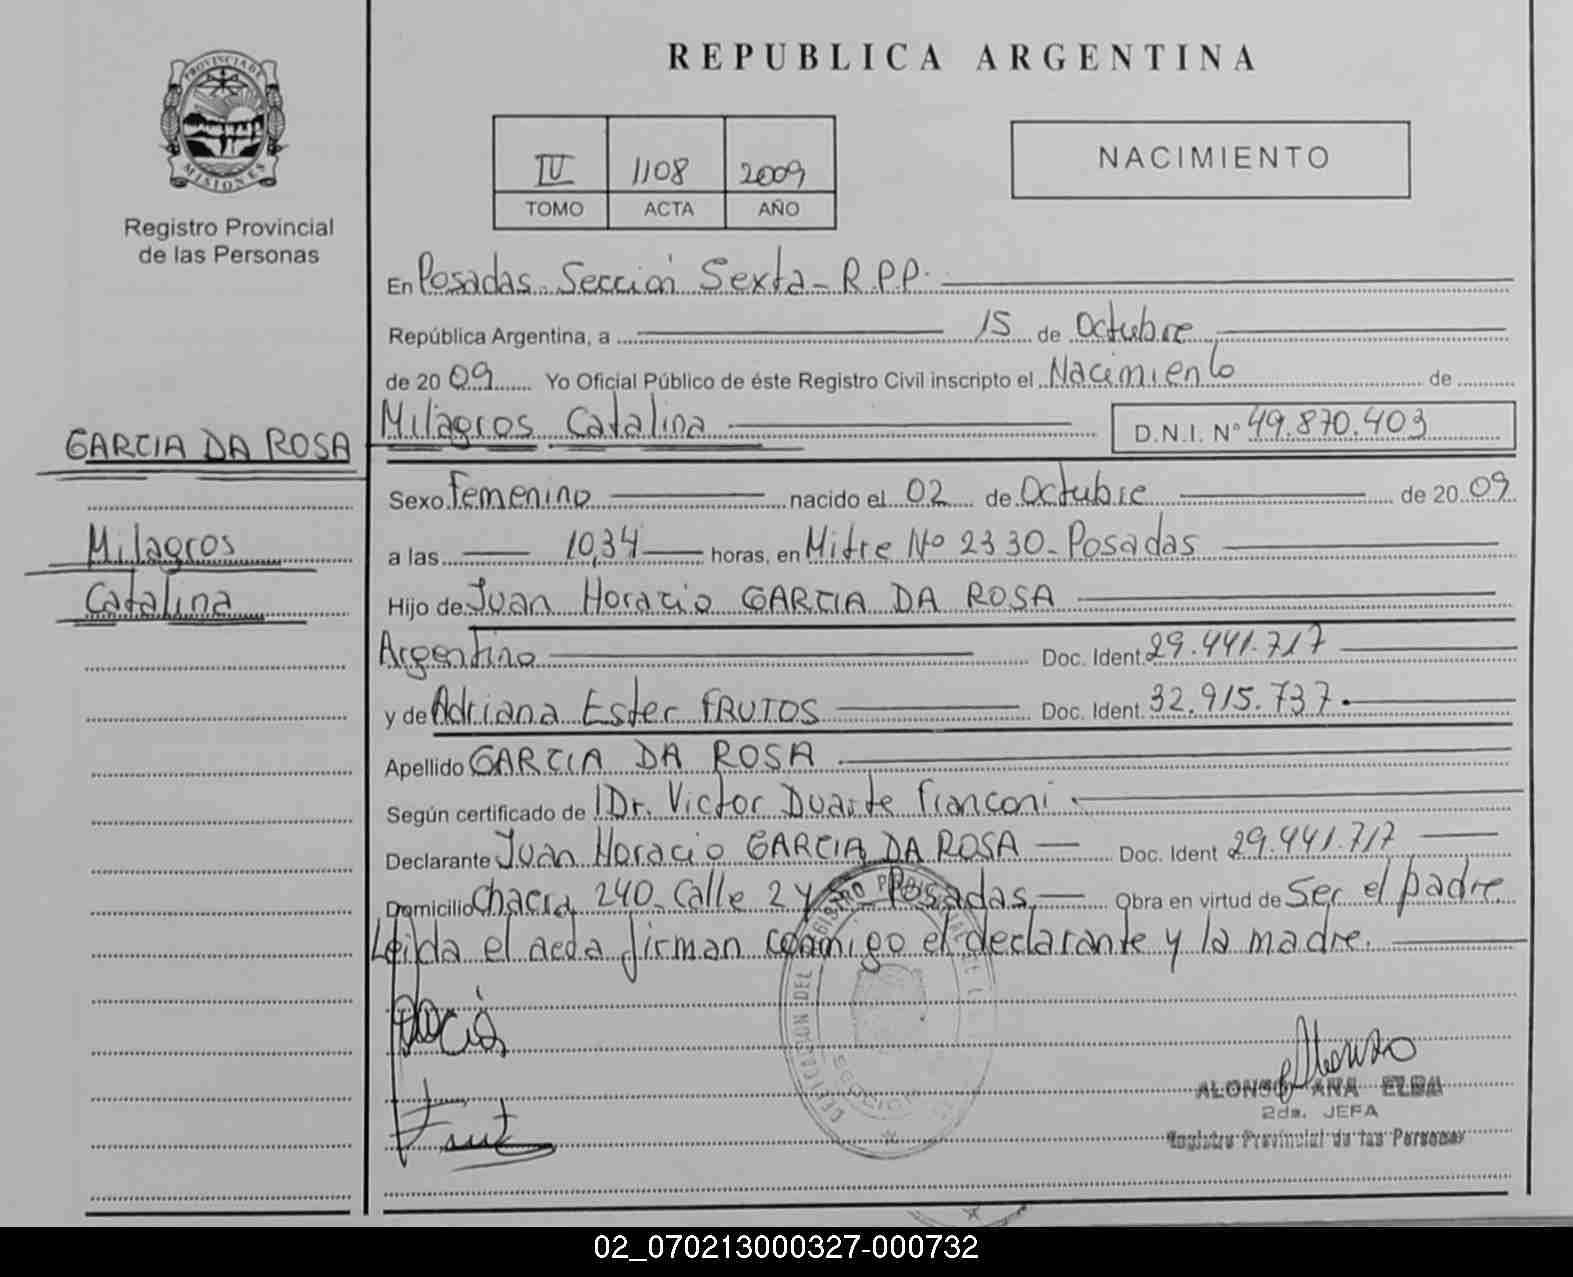 REPUBLICA ARGENTINA
PROVINCIA DE
MISIONES
Registro Provincial
de las Personas
IV 1108 2009
TOMO ACTA AÑO
NACIMIENTO
En Posadas Sección Sexta - R.P.P.
República Argentina, a 15 de Octubre
de 20 09 Yo Oficial Público de éste Registro Civil inscripto el Nacimiento de
Milagros Catalina D.N.I. N° 49.870.403
GARCIA DA ROSA
Milagros
Catalina
Sexo Femenino nacido el 02 de Octubre de 20 09
a las 10,34 horas, en Mitre Nº 2330 - Posadas
Hijo de Juan Horacio GARCIA DA ROSA
Argentino Doc. Ident. 29.441.717
y de Adriana Ester FRUTOS Doc. Ident. 32.915.737.
Apellido GARCIA DA ROSA
Según certificado de Dr. Victor Duarte Franconi
Declarante Juan Horacio GARCIA DA ROSA Doc. Ident 29.441.717
Domicilio Chacra 240 - Calle 2 y Posadas Obra en virtud de Ser el padre.
Leída el acta firman conmigo el declarante y la madre.
ALONSO ANA ELBA
2da. JEFA
Registro Provincial de las Personas
02_070213000327-000732